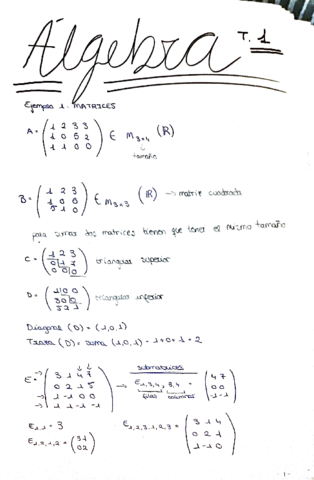 Álgebra T.1
Ejemplo 1: MATRICES
A = ( 1 2 3 3
1 0 5 2
1 1 0 0 ) ∈ M3×4 (ℝ)
tamaño
B = ( 1 2 3
1 0 0
5 1 0 ) ∈ M3×3 (ℝ) → matriz cuadrada
para sumar dos matrices tienen que tener el mismo tamaño
C = ( 1 2 3
0 1 1
0 0 0 ) triangular superior
D = ( 1 0 0
3 0 0
3 2 1 ) triangular inferior
Diagonal (D) = (1,0,1)
Traza (D) = suma (1,0,1) = 1+0+1 = 2
submatrices
E = ( 3 1 4 7
0 2 1 5
1 -1 0 0
1 1 -1 -1 ) → E1,3,4 , 3,4 = ( 4 7
0 0
-1 -1 )
filas columnas
E1,1 = 3
E1,2,1,2 = ( 3 1
0 2 )
E1,2,3,1,2,3 = ( 3 1 4
0 2 1
1 -1 0 )
-1-